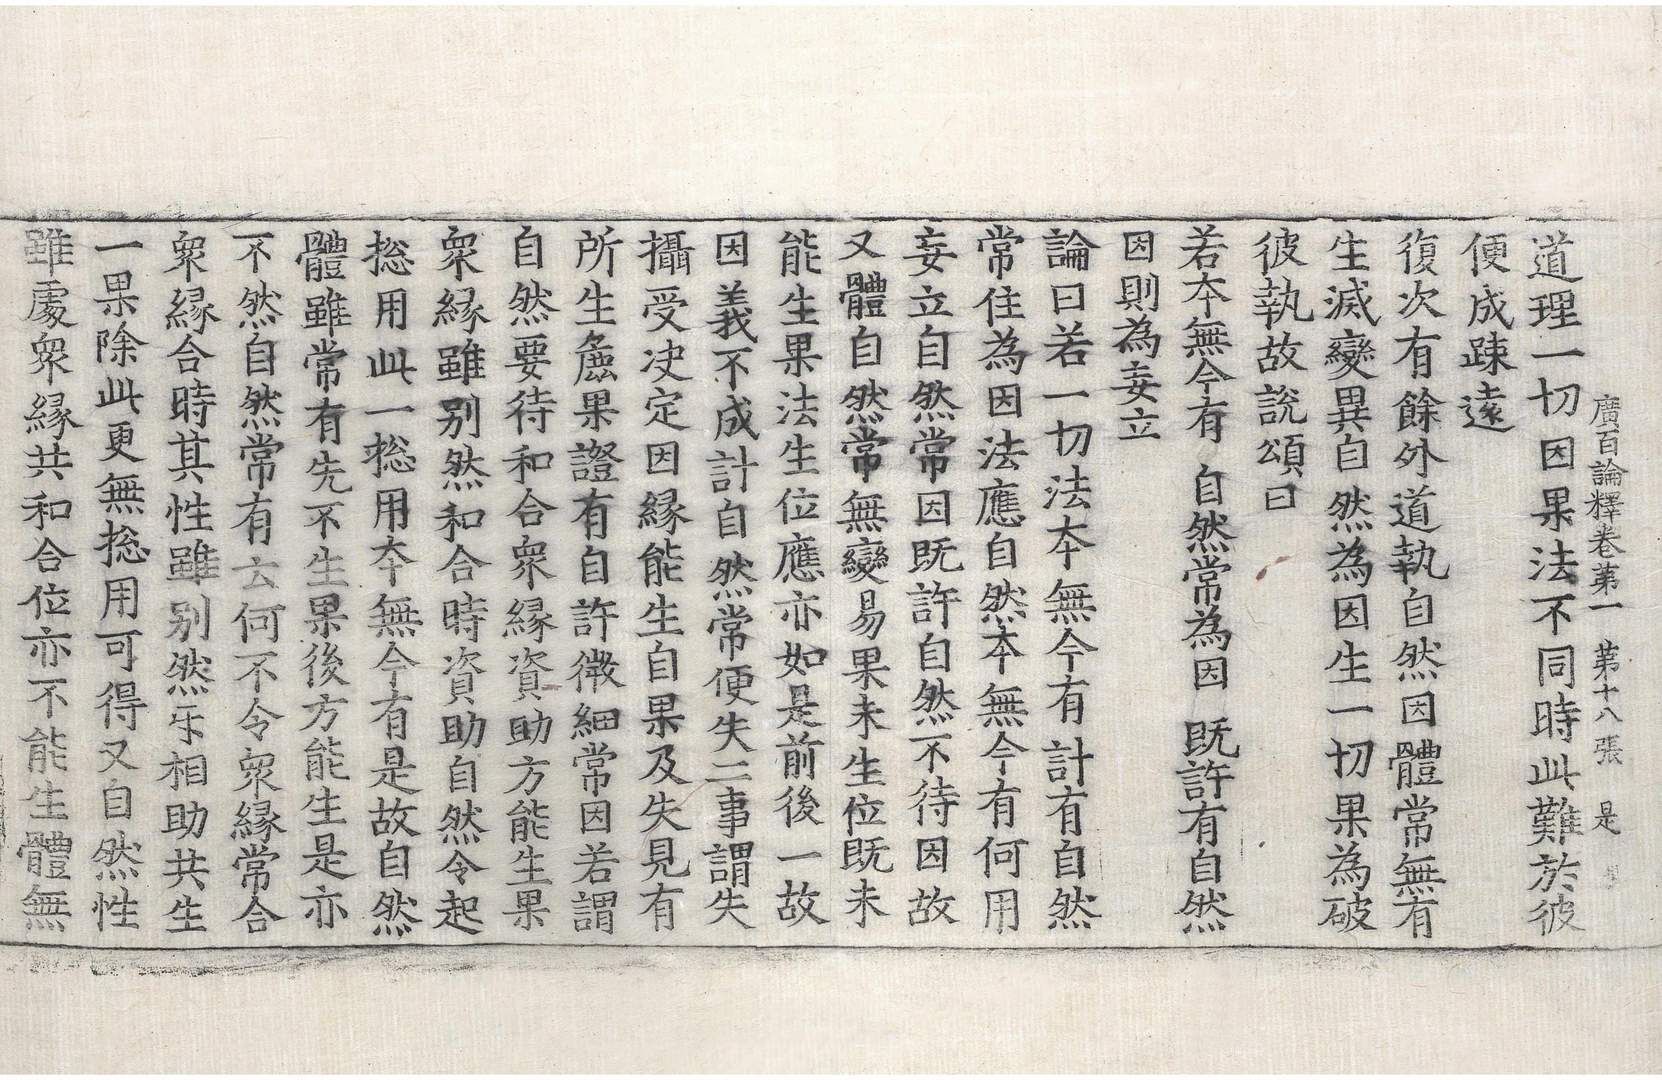 廣百論釋卷第一　第十八張　是
道理一切因果法不同時此難於彼
便成踈遠
復次有餘外道執自然因體常無有
生滅變異自然為因生一切果為破
彼執故說頌曰
若本無今有　自然常為因　既許有自然
因則為妄立
論曰若一切法本無今有計有自然
常住為因法應自然本無今有何用
妄立自然常因既許自然不待因故
又體自然常無變易果未生位既未
能生果法生位應亦如是前後一故
因義不成計自然常便失二事謂失
攝受決定因緣能生自果及失見有
所生麁果證有自許微細常因若謂
自然要待和合衆緣資助方能生果
衆緣雖別然和合時資助自然令起
捴用此一捴用本無今有是故自然
體雖常有先不生果後方能生是亦
不然自然常有云何不令衆緣常合
衆緣合時其性雖別然乐相助共生
一果除此更無捴用可得又自然性
雖處衆緣共和合位亦不能生體無